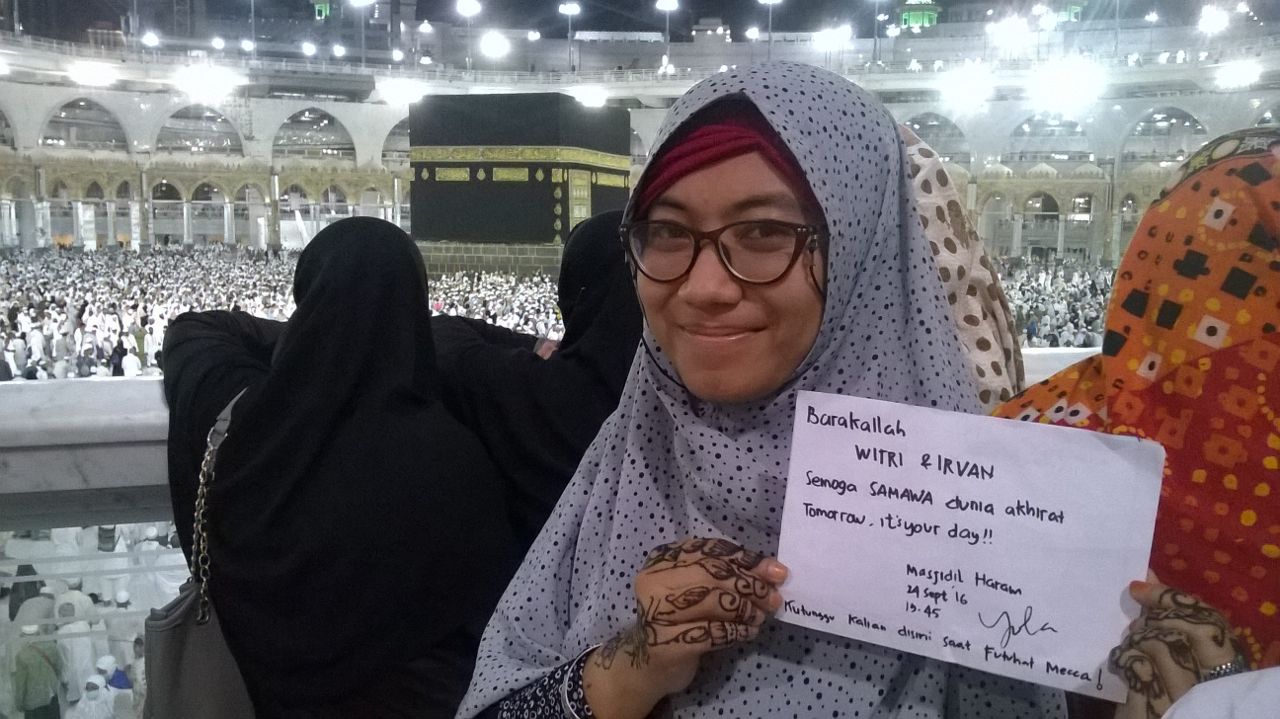 Barakallah
WITRI & IRVAN
Semoga SAMAWA dunia akhirat
Tomorrow, it's your day!!
Masjidil Haram
24 Sept '16
19.45
Yula
Kutunggu kalian disini saat Futuhat Mecca!